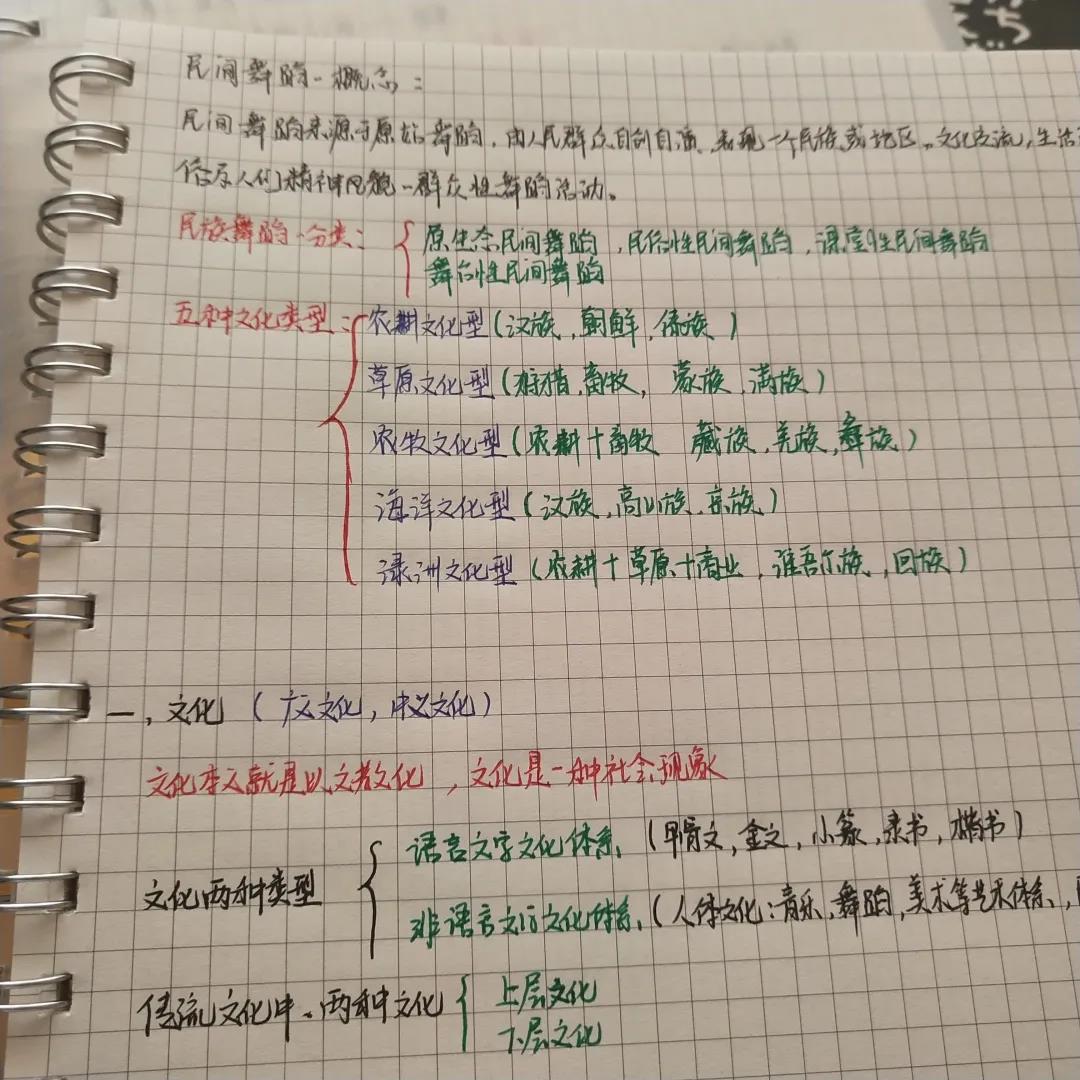 民间舞蹈、概念:
民间舞蹈来源于原始舞蹈,由人民群众自创自演、表现一个民族或地区、文化交流,生活
俗尽人们精神风貌、群众性舞蹈活动。
民族舞蹈、分类:
原生态民间舞蹈,民俗性民间舞蹈,课堂性民间舞蹈
舞台性民间舞蹈
五种文化类型:
农耕文化型(汉族,朝鲜,傣族)
草原文化型(狩猎,畜牧,蒙族,满族)
农牧文化型(农耕十畜牧 藏族,羌族,彝族)
海洋文化型(汉族,高山族,京族)
绿洲文化型(农耕十草原十商业,维吾尔族,回族)
一,文化(广义文化,中义文化)
文化本义就是以文教文化,文化是一种社会现象
文化两种类型
语言文字文化体系、(甲骨文,金文,小篆,隶书,楷书)
非语言文字文化体系、(人体文化:音乐,舞蹈,美术等艺术体系、
传统文化中、两种文化
上层文化
下层文化